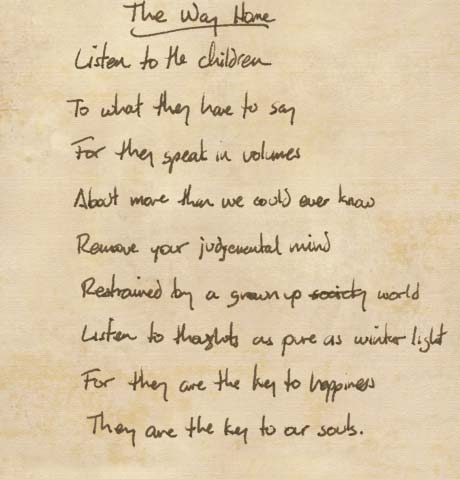 The Way Home
Listen to the children
To what they have to say
For they speak in volumes
About more than we could ever know
Remove your judgemental mind
Restrained by a grown up society world
Listen to thoughts as pure as winter light
For they are the key to happiness
They are the key to our souls.